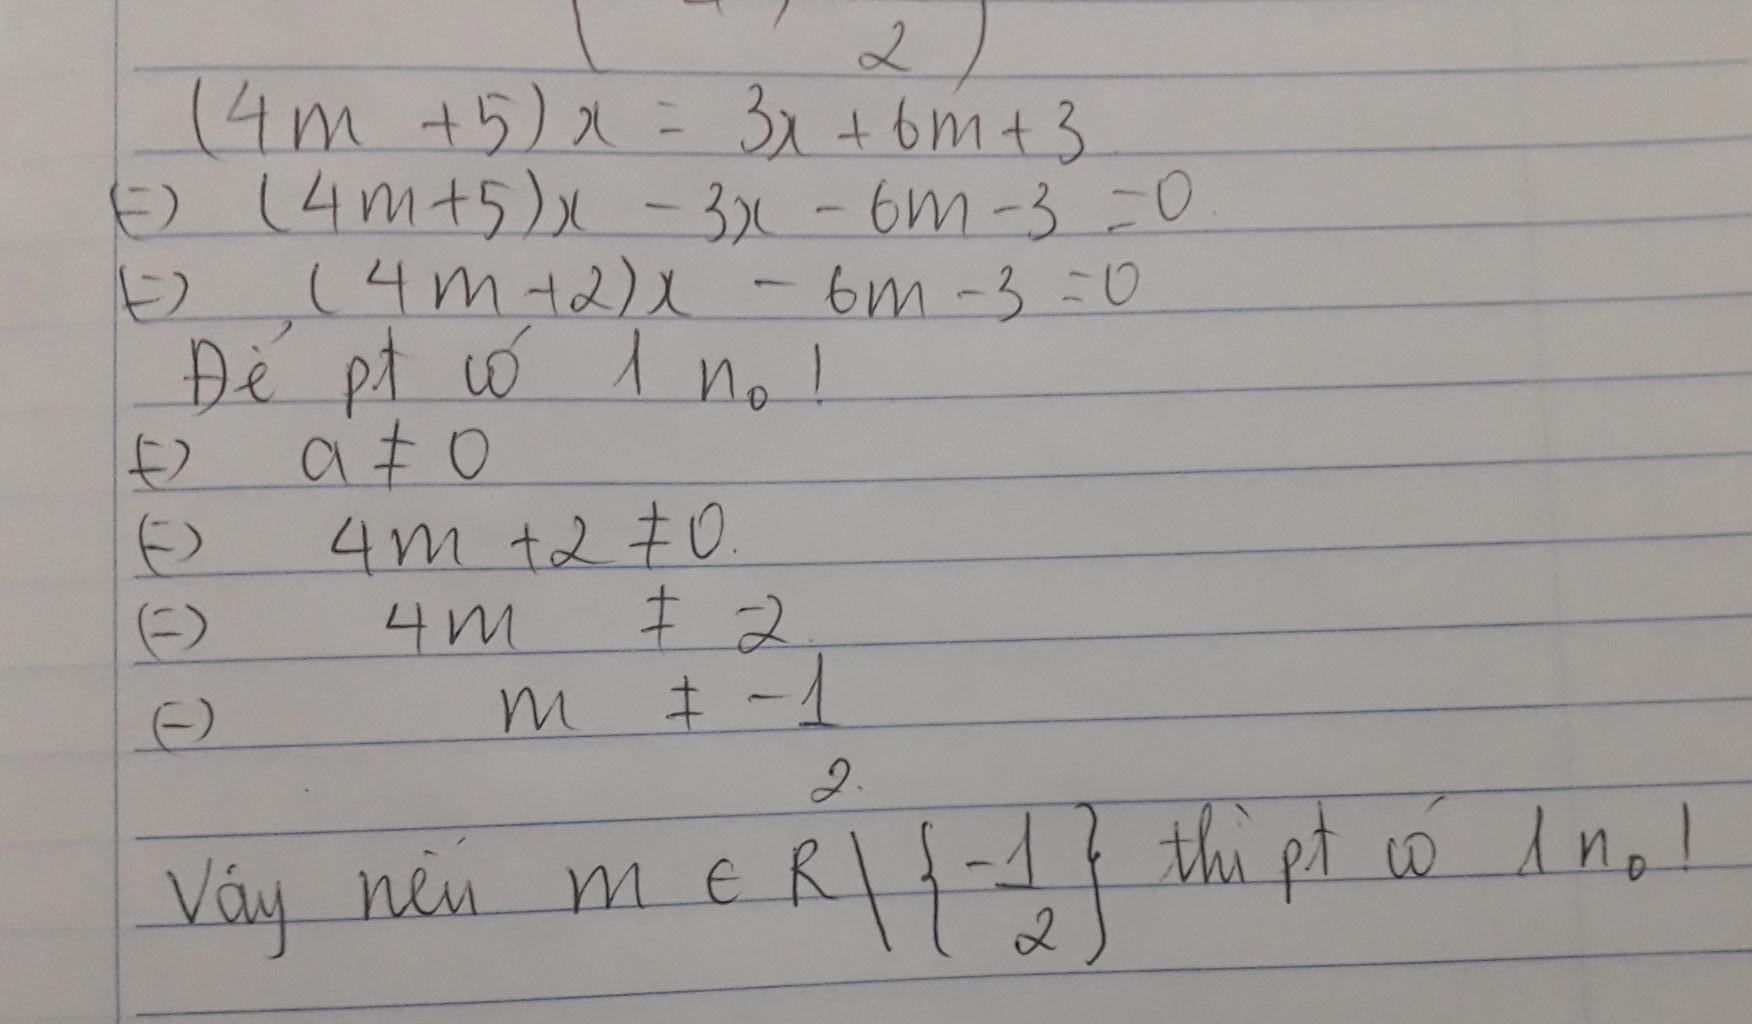 2)
(4m +5)x = 3x + 6m + 3
(=) (4m+5)x - 3x - 6m - 3 = 0.
(=) (4m+2)x - 6m - 3 = 0
Để pt có 1 n₀!
(=) a ≠ 0
(=) 4m +2 ≠ 0.
(=) 4m ≠ -2
(=) m ≠ -1
2.
Vậy nếu m ∈ R \ { -1/2 } thì pt có 1 n₀!